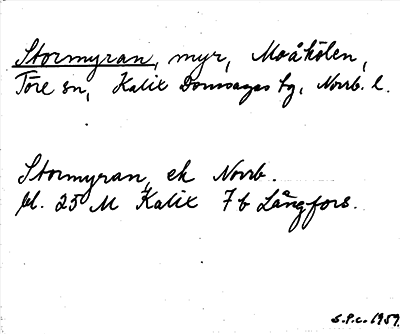 Stormyran, myr, Moåhölen,
Töre sn, Kalix Domsagas tg, Norrb. l.
Stormyran, ek Norrb.
bl. 25 M Kalix 7b Långfors.
S.P.C. 1959.